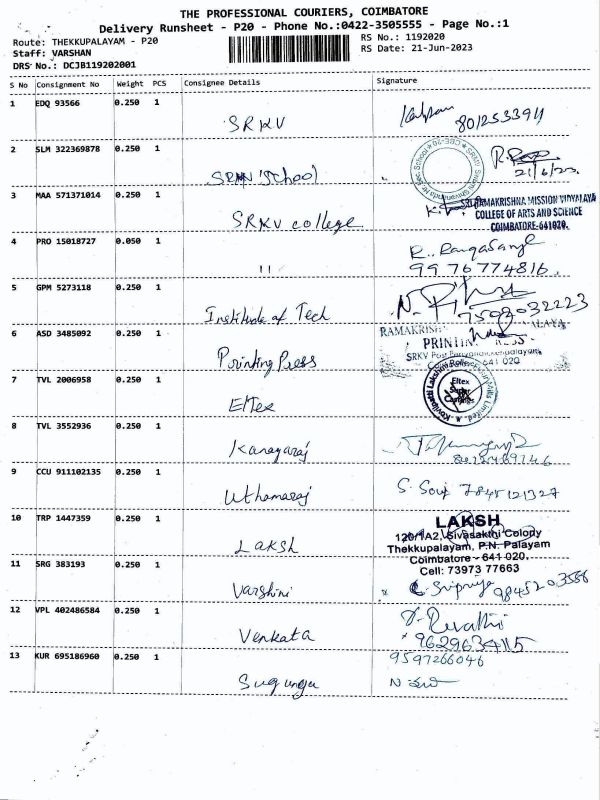 THE PROFESSIONAL COURIERS, COIMBATORE
Delivery Runsheet - P20 - Phone No.:0422-3505555 - Page No.:1
Route: THEKKUPALAYAM - P20
RS No.: 1192020
Staff: VARSHAN
RS Date: 21-Jun-2023
DRS No.: DCJB119202001
S No Consignment No Weight PCS Consignee Details Signature
1 EDQ 93566 0.250 1
SRKV
801253394
2 SLM 322369878 0.250 1
School
21/6/23
3 MAA 571371014 0.250 1
SRKV college
SRI RAMAKRISHNA MISSION VIDYALAYA
COLLEGE OF ARTS AND SCIENCE
COIMBATORE-641020.
4 PRO 15018727 0.050 1
11
R. Rangasamy
9976774816.
5 GPM 5273118 0.250 1
Institute of Tech
7598032223
6 ASD 3485092 0.250 1
Printing Press
RAMAKRISH
ALAYA
PRINTIN
SRKV Post
641 020
7 TVL 2006958 0.250 1
Eltex
Kovilpatti Lakshmi Roller Flour Mills Limited
Eltex
Super
Castings
8 TVL 3552936 0.250 1
Kanagaraj
9 CCU 911102135 0.250 1
Uthamaraj
7845121327
10 TRP 1447359 0.250 1
LAKSH
LAKSH
120/1A2, Sivasakthi Colony
Thekkupalayam, P.N. Palayam
Coimbatore - 641 020.
Cell: 73973 77663
11 SRG 383193 0.250 1
Varshini
Sripriya
9845203556
12 VPL 402486584 0.250 1
Venkata
Revathi
9629634115
13 KUR 695186960 0.250 1
Suguna
9597266046